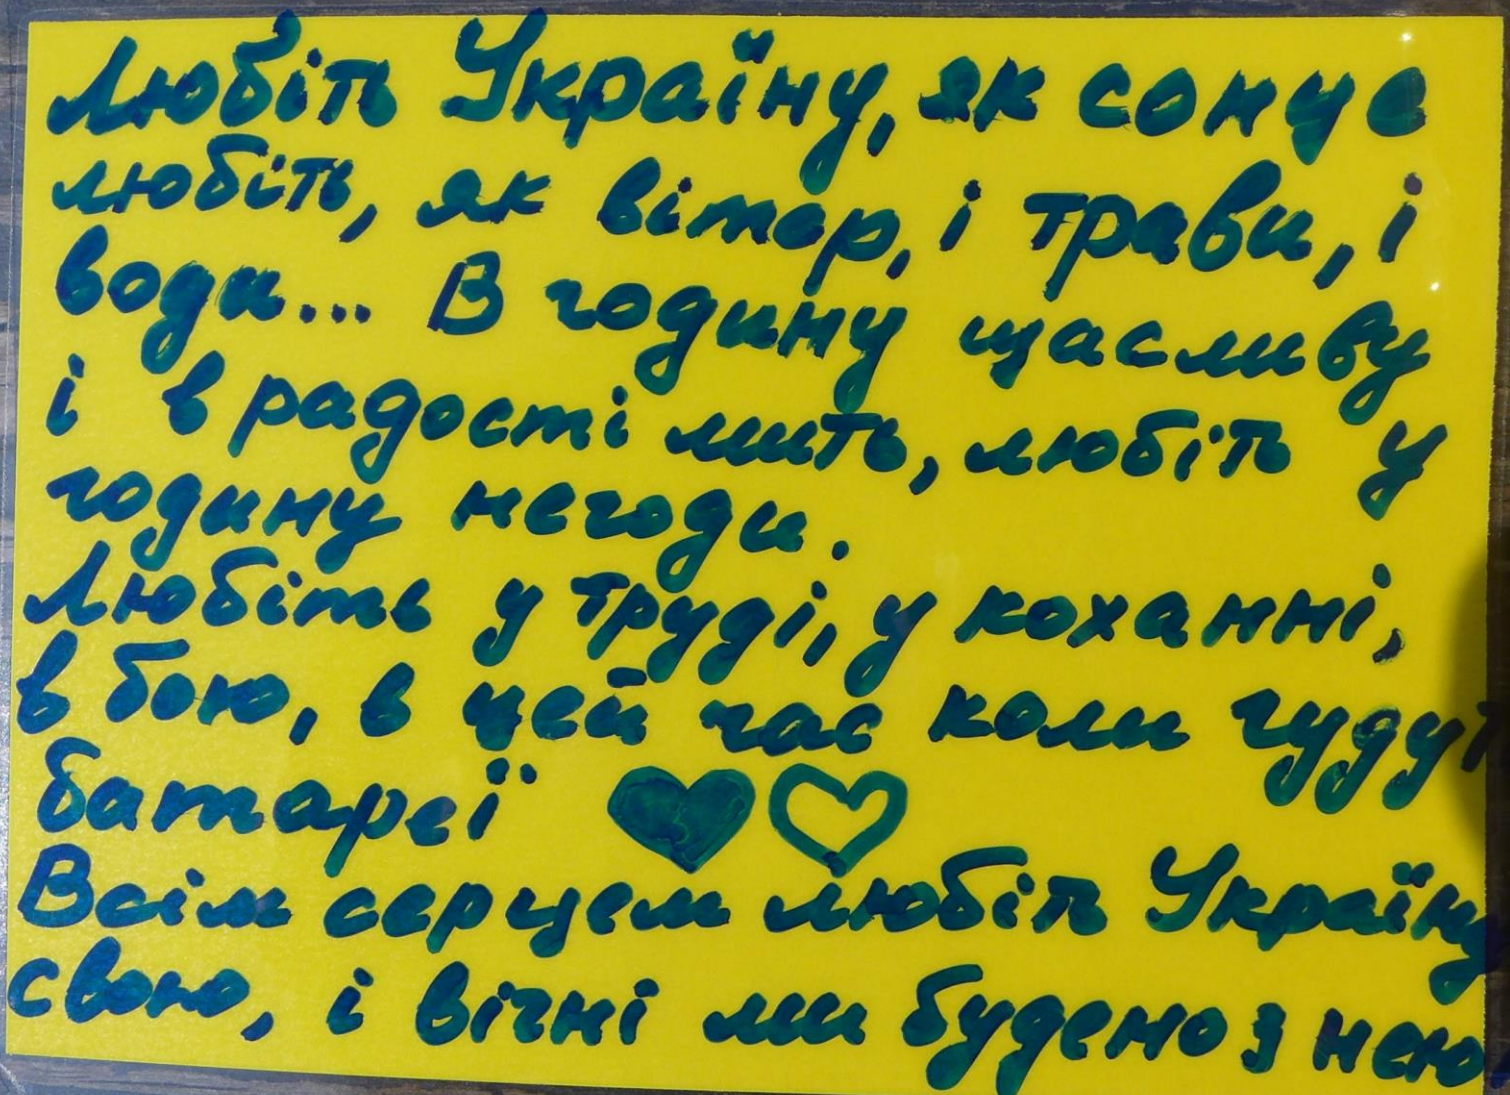 Любіть Україну, як сонце
любіть, як вітер, і трави, і
води... В годину щасливу
і в радості мить, любіть у
годину негоди.
Любіть у труді, у коханні,
в бою, в цей час коли гудут
батареї
Всім серцем любіть Україну
свою, і вічні ми будемо з нею